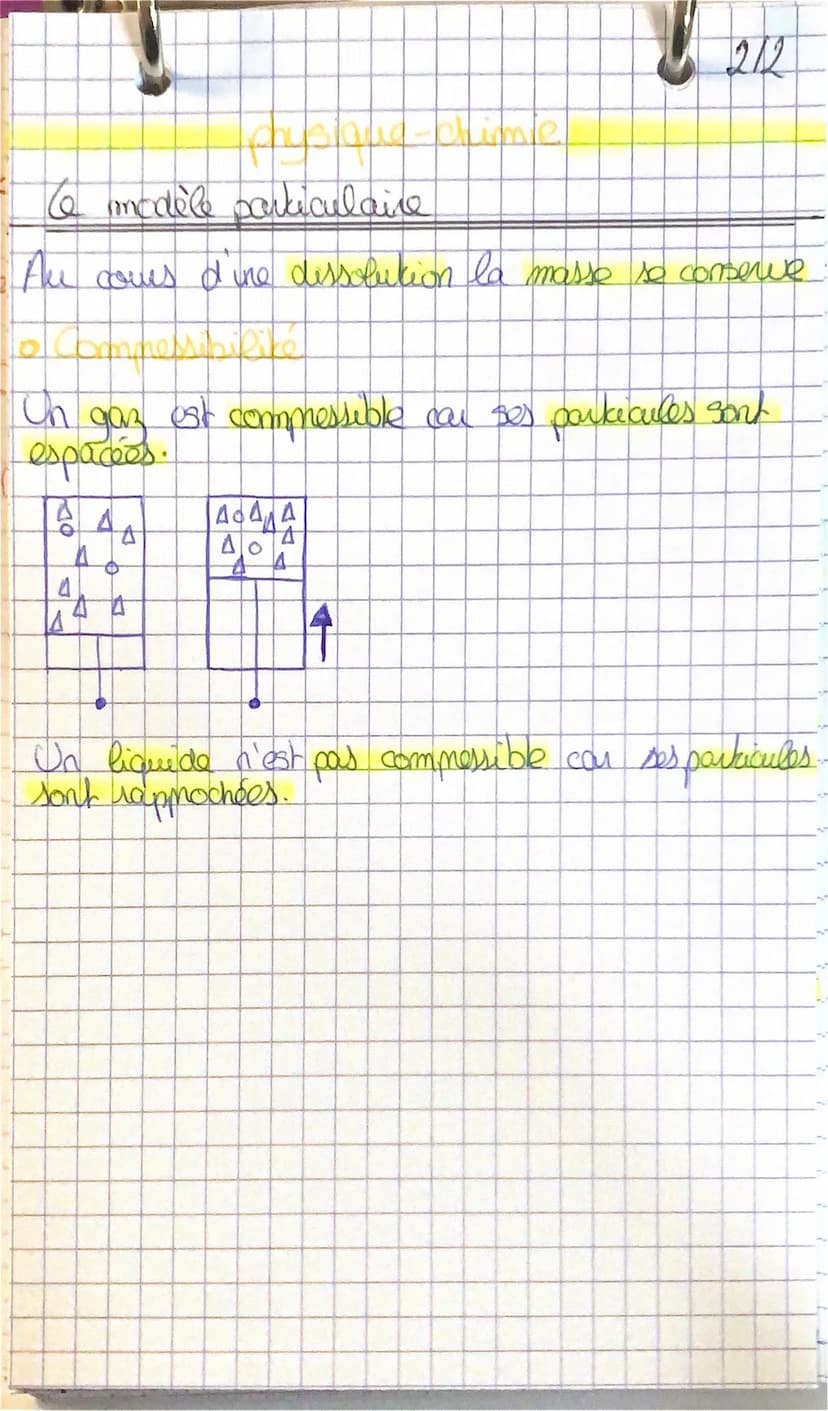 2/2
physique-chimie
Le modèle particulaire
Au cours d'une dissolution la masse se conserve
Compressibilité
Un gaz est compressible car ses particules sont
espacées.
Un liquide n'est pas compressible car ses particules
sont rapprochées.